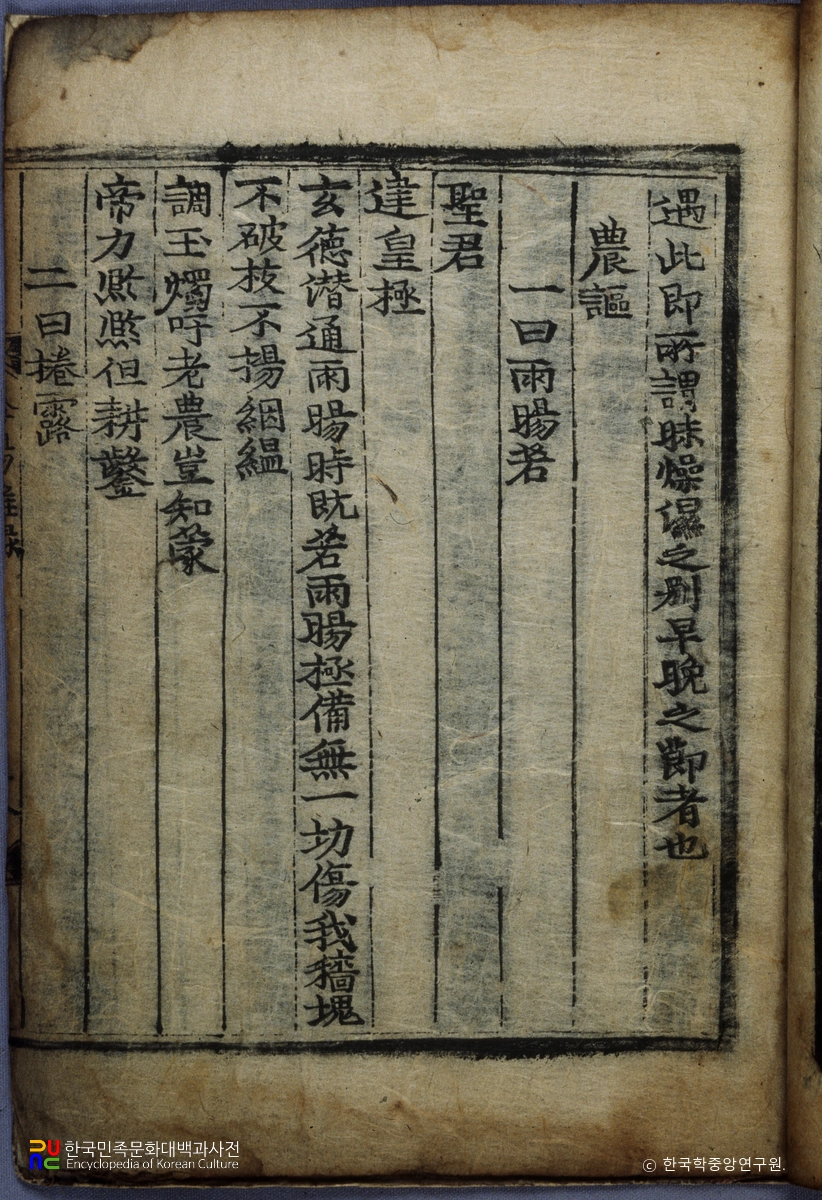 遇此即所謂昧燥濕之別早晚之節者也
農謳
一曰雨暘若
聖君
達皇極
玄德潜通雨暘時旣若雨暘極備無一功傷我穡塊
不破枝不揚絪縕
調玉燭吁老農豈知蒙
帝力熙熙但耕鑿
二曰捲露
한국민족문화대백과사전
Encyclopedia of Korean Culture
© 한국학중앙연구원.